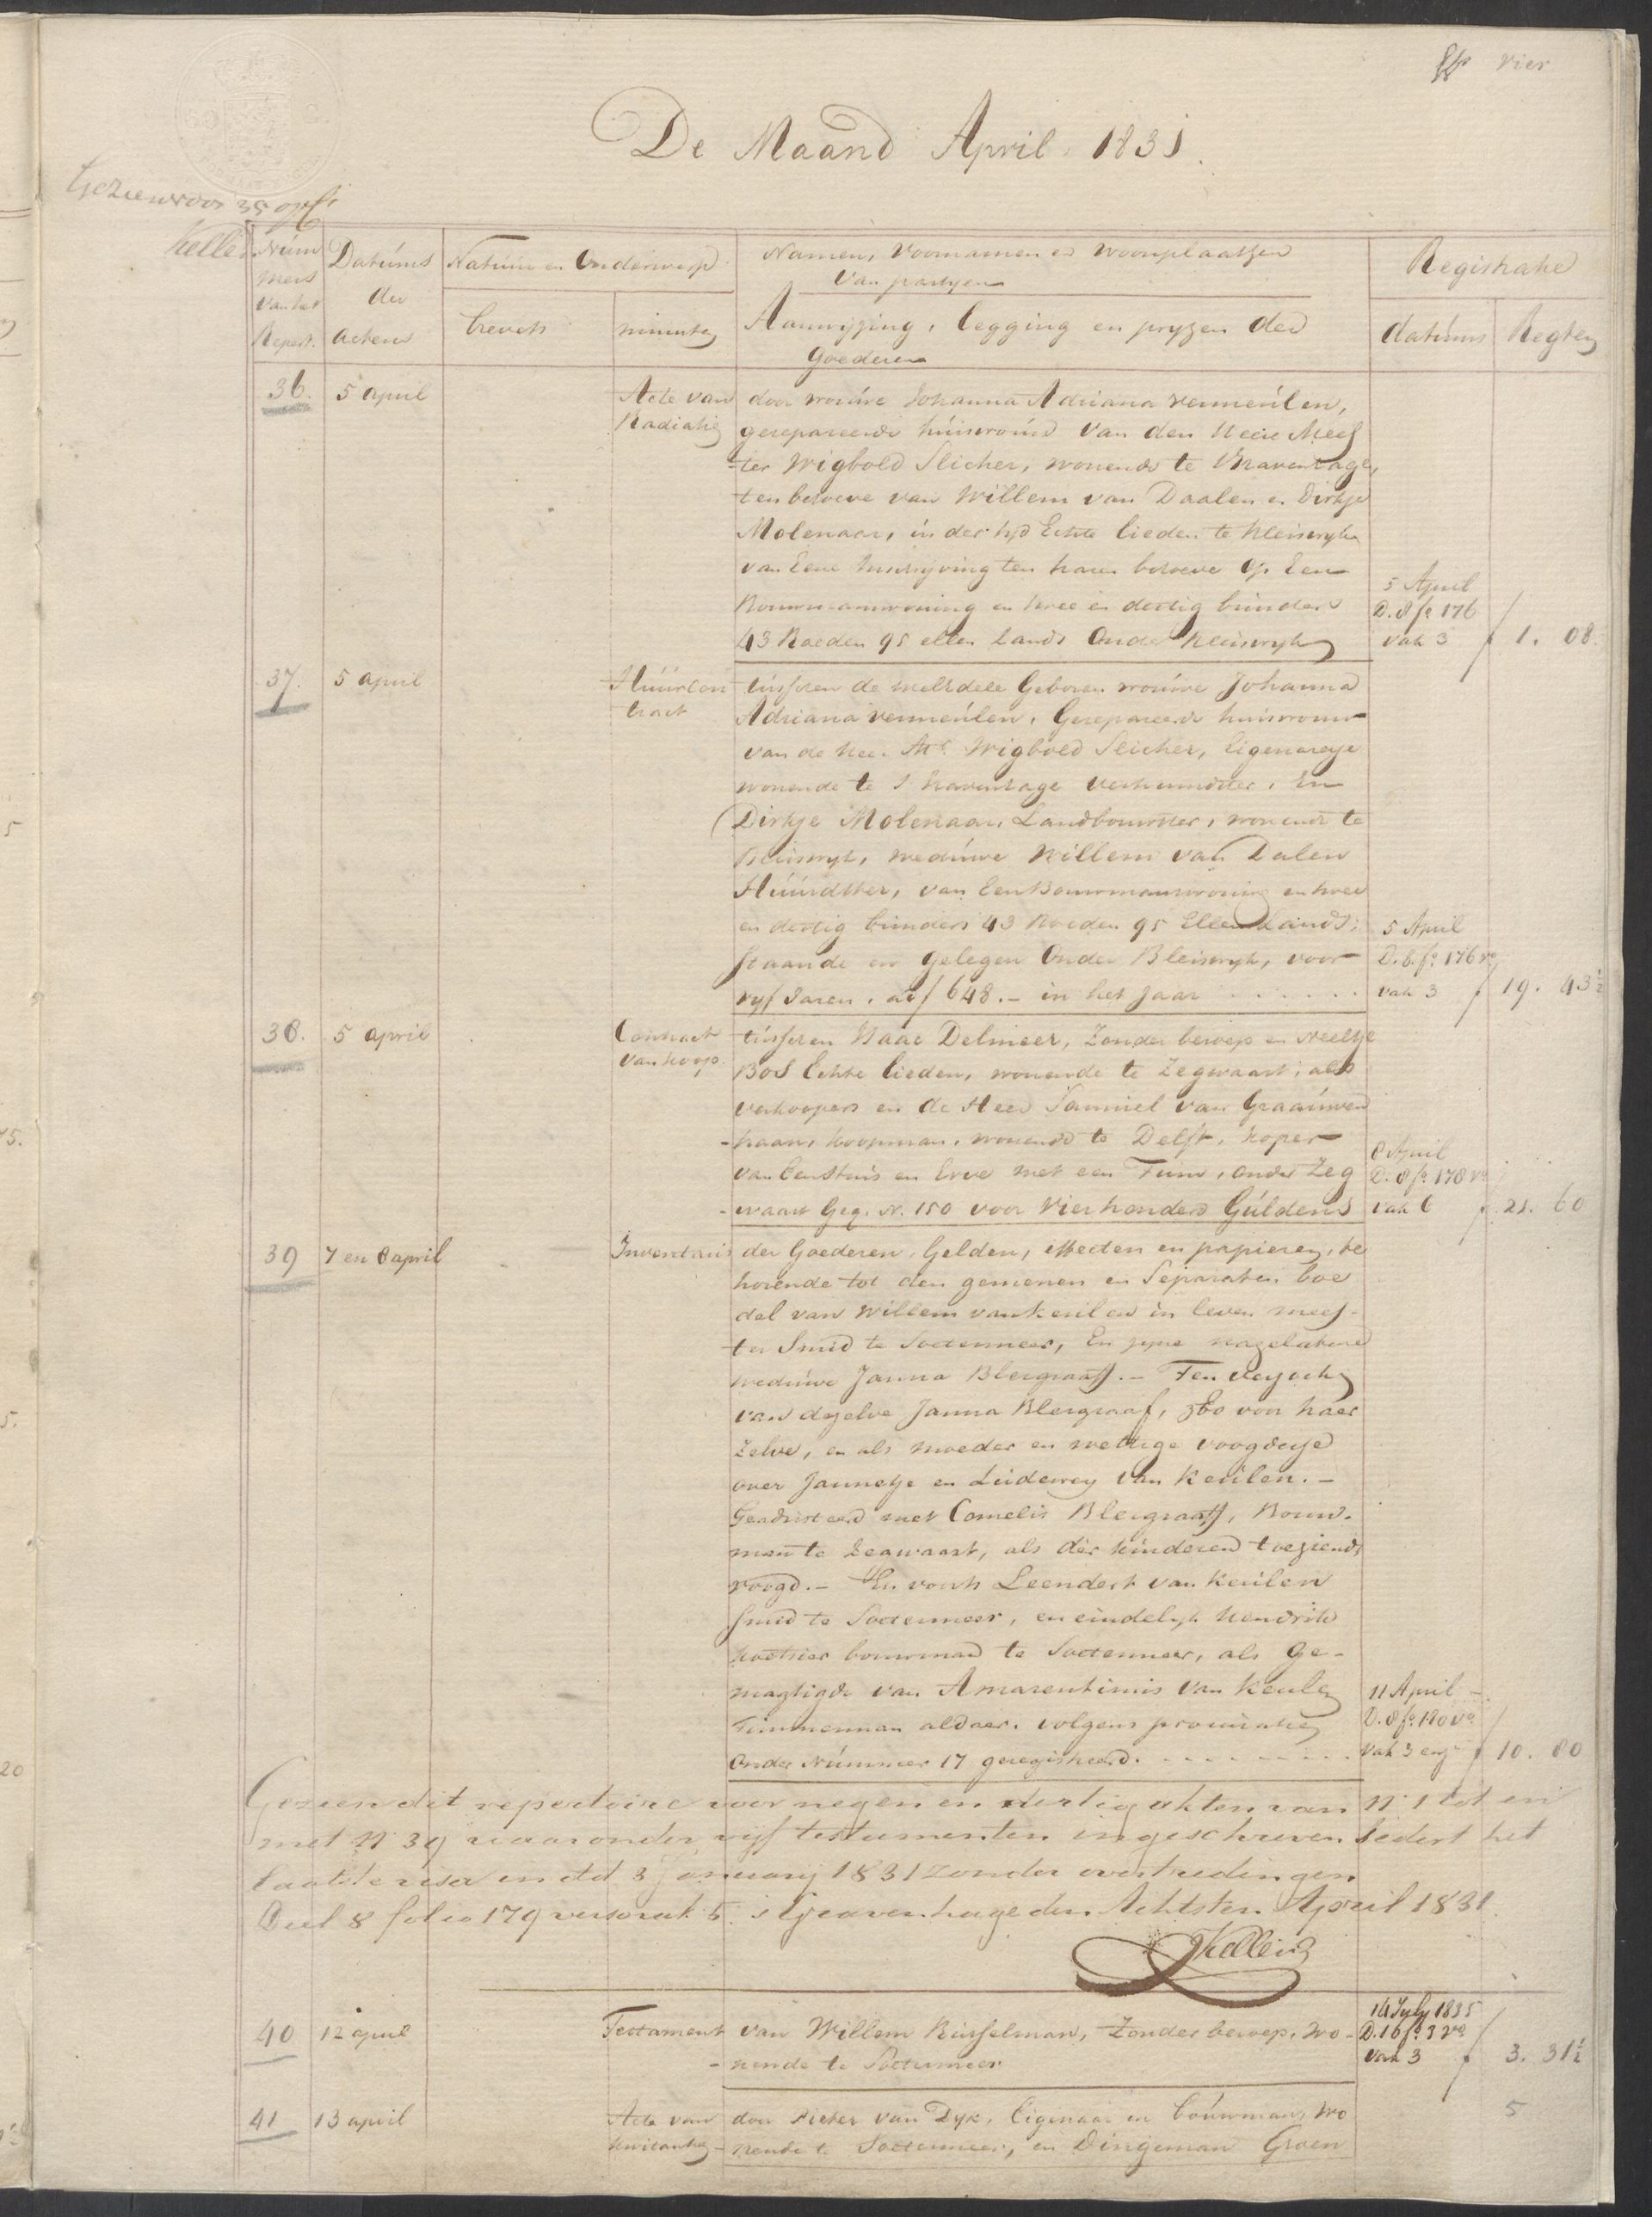 vier
De Maand April 1831.
Gezien voor 35 
Keller
Num
mers
van het
Repert.
Datums
der
acten
Natuur en Onderwerp
brevets
minuten
Namen, Voornamen en woonplaatsen
van partyen
Aanwijzing, legging en pryzen der
Goederen
Registratie
datums
Regten
36.
5 april
Acte van
Radiatie
door vrouwe Johanna Adriana Vermeulen,
gesepareerde huisvrouw van den Heere Mees
-ter Wigbold Slicher, wonende te 's Gravenhage,
ten behoeve van Willem van Daalen en Dirkje
Molenaar, in der tyd Echte lieden te Bleiswyk
van Eene Inschryving ten haren behoeve op Een
Bouwmanswoning en twee en dertig bunders
43 Roeden 95 ellen Lands Onder Bleiswyk
5 April
D. 8 fo 176
vak 3
f 1. 08.
37.
5 april
Huurcon
tract
tusschen de weledele Geboren vrouwe Johanna
Adriana Vermeulen, Gesepareerde huisvrouw
van de Heer Mr. Wigbold Slicher, Eigenaresse
wonende te 's Gravenhage verhuurdster, En
Dirkje Molenaar, Landbouwster, wonende te
Bleiswyk, weduwe Willem van Dalen
Huurdster, van Een Bouwmanswoning en twee
en dertig bunders 43 Roeden 95 Ellen Lands;
staande en gelegen Onder Bleiswyk, voor
vyf Jaren, a f 648.- in het Jaar
5 April
D. 8. fo. 176 vo
vak 3
f 19. 43½
38.
5 april
Contract
van koop.
tusschen Isaac Delmeer, Zonder beroep en Neeltje
Bos Echte lieden, wonende te Zegwaart, als
verkoopers en de Heer Samuel van Graauwen
-haan, koopman, wonende te Delft, koper
van Een Huis en Erve met een Tuin, onder Zeg
-waart Geq. N. 150 voor Vier honderd Guldens
8 April
D. 8 fo 178 vo
vak 6
f 21. 60
39
7 en 8 april
Inventaris
der Goederen, Gelden, effecten en papieren, be
horende tot den gemenen en Separaten boe
del van Willem van Keulen in leven mees-
ter Smid te Soetermeer, En zyne nagelatene
weduwe Janna Blergraaff.- Ten verzoeke
van dezelve Janna Blergraaf, zoo voor haar
Zelve, en als moeder en wettige voogdesse
over Jannetje en Luidewey van Keulen.-
Geadsisteerd met Cornelis Blergraaff, Bouw-
man te Zegwaart, als der kinderen toeziende
voogd.- En voorts Leendert van Keulen
smid te Soetermeer, en eindelyk Hendrik
Koetsier bouwman te Soetermeer, als Ge-
magtigde van Amarentinus van Keulen
Timmerman aldaar. volgens procuratie
Onder Nummer 17 geregistreerd.
11 April
D. 8 fo 180 vo
vak 3 en
f 10. 80
Gezien dit repertoire voor negen en dertig akten van No 1 tot en
met No 39 waaronder vyf testamenten ingeschreven sedert het
laatste visa in dd 3 January 1831 zonder overtredingen
Deel 8 folio 179 verso vak 5. 's Gravenhage den Achtsten April 1831.
Keller
40
12 april
Testament
van Willem Russelman, Zonder beroep, wo-
-nende te Soetermeer
14 July 1835
D. 16 fo. 3 vo
vak 3
f 3. 31½
41
13 april
Acte van
kwitantie
door Pieter van Dyk, Eigenaar en bouwman, wo
-nende te Soetermeer, en Dingeman Groen
5